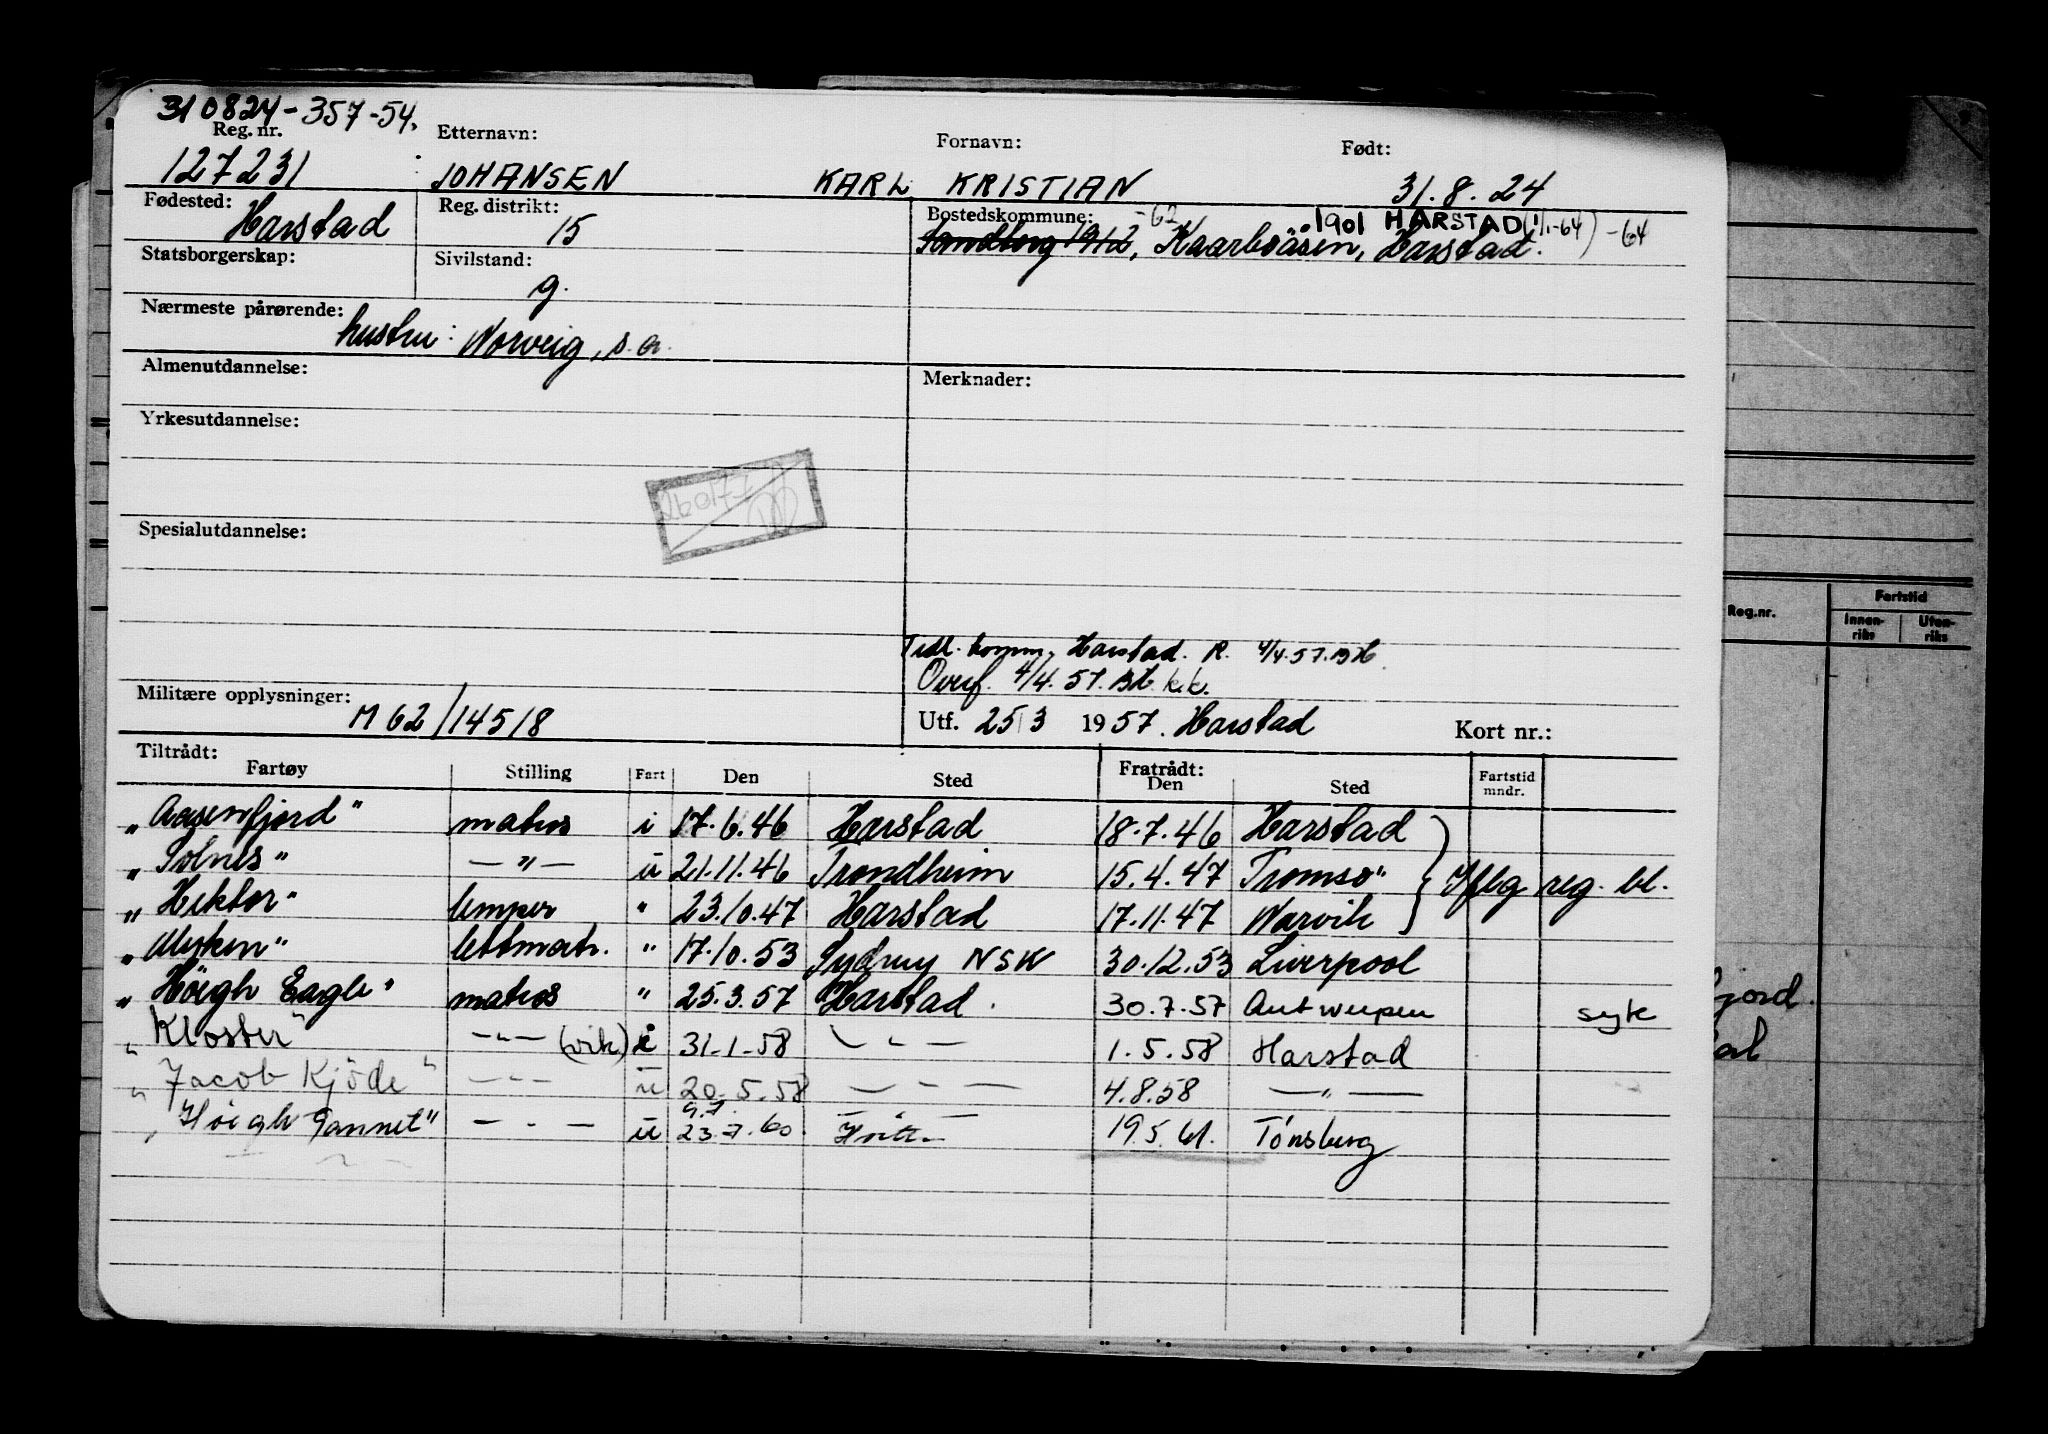 310824-357-54.
Reg. nr. Etternavn: Fornavn: Født:
127231 JOHANSEN KARL KRISTIAN 31.8.24
Fødested: Harstad Reg. distrikt: 15 Bostedskommune: -62 1901 HARSTAD (1/1-64) -64
Kaarbøåsen, Harstad.
Statsborgerskap: Sivilstand: g.
Nærmeste pårørende: hustru: Norveig, s.a.
Almenutdannelse: Merknader:
Yrkesutdannelse:
Spesialutdannelse:
Tidl. komm. Harstad. R. 4/4.57. BH.
Overf. 4/4.57. BH. k.k.
Militære opplysninger: M 62/14518 Utf. 25/3 1957. Harstad Kort nr.:
Tiltrådt: Fratrådt:
Fartøy Stilling Fart Den Sted Den Sted Fartstid mndr.
"Aasenfjord" matros i 17.6.46 Harstad 18.7.46 Harstad
"Solnes" —"— u 21.11.46 Trondheim 15.4.47 Tromsø } Iflg reg. bl.
"Hektor" lemper " 23.10.47 Harstad 17.11.47 Narvik
"Myken" lettmatr. " 17.10.53 Sydney NSW 30.12.53 Liverpool
"Höegh Eagle" matros " 25.3.57 Harstad. 30.7.57 Antwerpen syk
"Kloster" —"— (vik) i 31-1-58 —"— 1.5.58 Harstad
"Jacob Kjöde" —"— u 20.5.58 —"— 4.8.58 —"—
9.7.
"Höegh Gannet" —"— u 23.7.60. 19.5.61. Tönsberg
Reg.nr. Fartstid
Innen-riks Uten-riks
fjord.